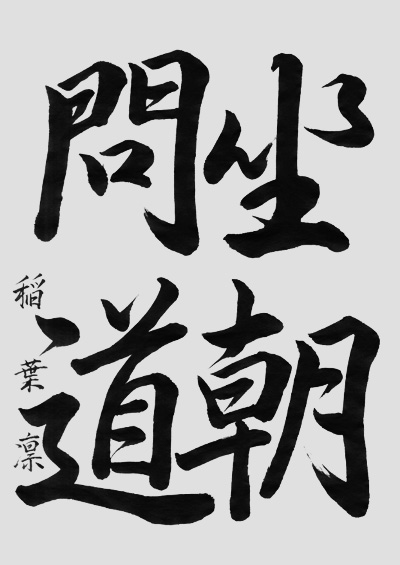 坐朝
問道
稲葉凛